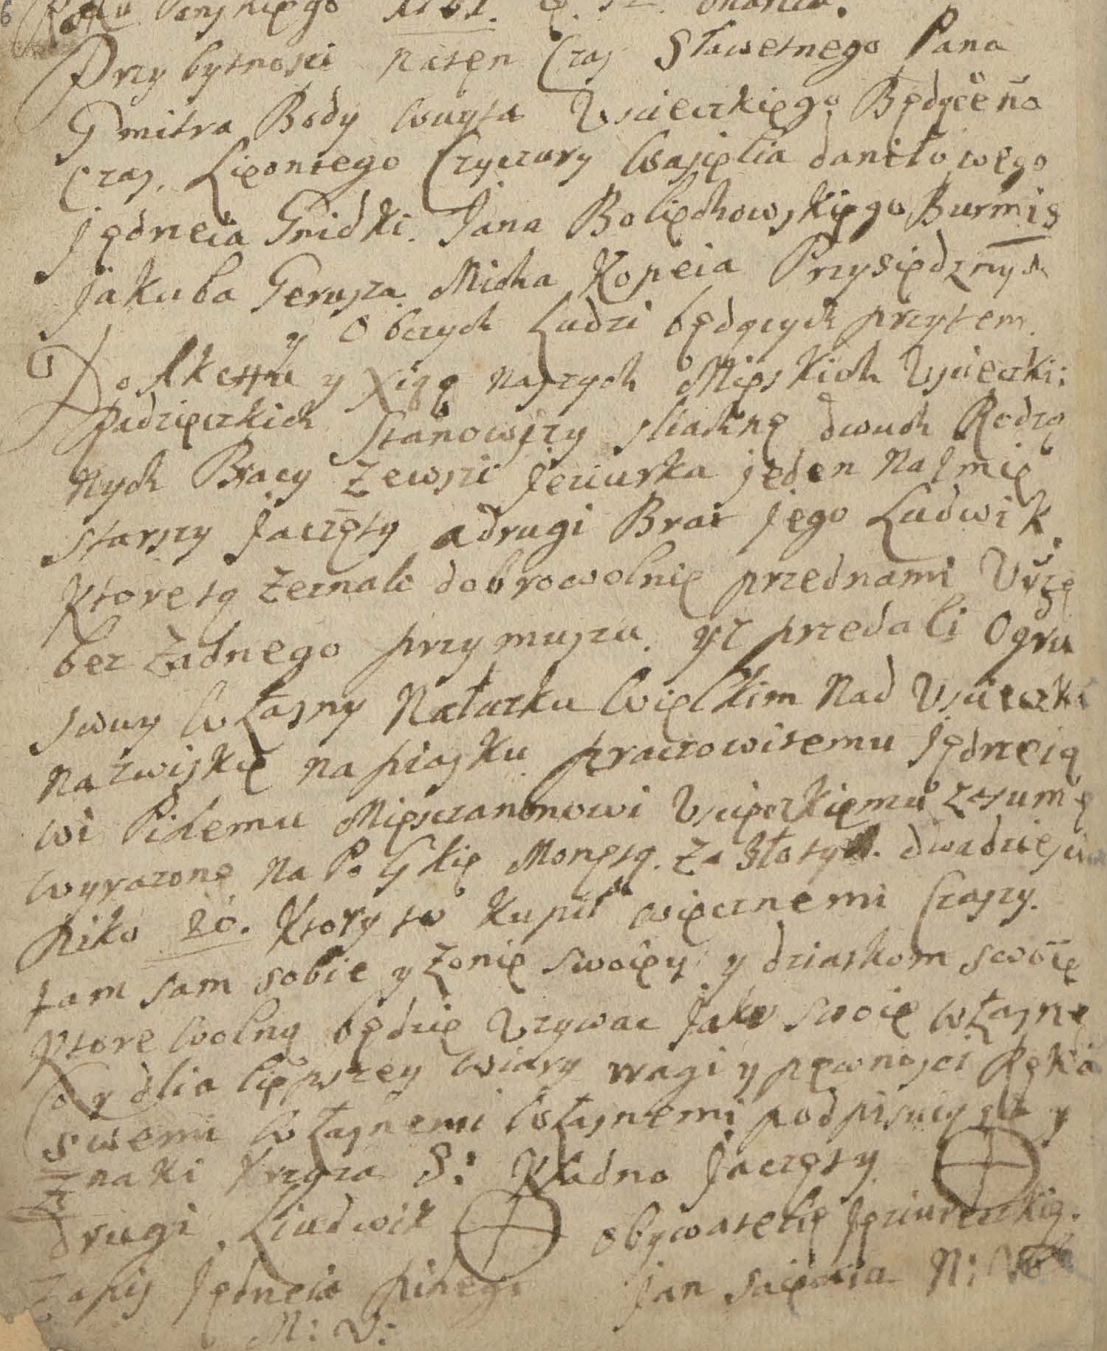 Roku Pańskiego 1751. d. 12. Marca.
Przy bytnosci naten Czas Sławetnego Pana
Gmitra Body Wuyta Uscieckiego Będące na
Czas. Liepontego Czyczury Wasielia daniłowego
Jędrzeia Gridki. Jana Boliechowskiego Burmis
Jakuba Gerusza Micha Kopcia Przysiężnych
y Obczych Ludzi będących przytem.
Do Akcttu y Xiąg naszych Mieskich Uscieczki:
Radzieczkich Stanowszy sliachne dwuch Rodzo
nych Bracy zewszi Jeziurka jeden Naimie
starszy Jaczęty adrugi Brat jego Ludwik.
Ktore są zeznalo dobrowolnie przednami Urzę
bez żadnego przymuszu. yż przedali Ogru
swuy Własny Nałazku Wielkim Nad Uscieczk
Nazwiskie na piasku praczowitemu Jędrzeio
wi Pihemu Miesczaninowi Uscieczkiemu za sumę
wyrazone na Polskie Monetą. za Złotych. dwadziescia
hiko 20. Ktory to kupił wiecznemi Czaszy.
tam sam sobie y Żonie swoiey y dziatkom swoie
Ktore Wolny będzie Uzywac Jako swoie własne
Co y dlia liepszey Wiary wagi y pewnosci Ręka
swemi Własnemi Własnemi podpisuiąsie y
Znaki krzyza S: Kładno Jaczęty
drugi Liudwik Obywatelie Jeziureczkie.
Zapis Jędrzeia Pihego Jan N:
M: V: